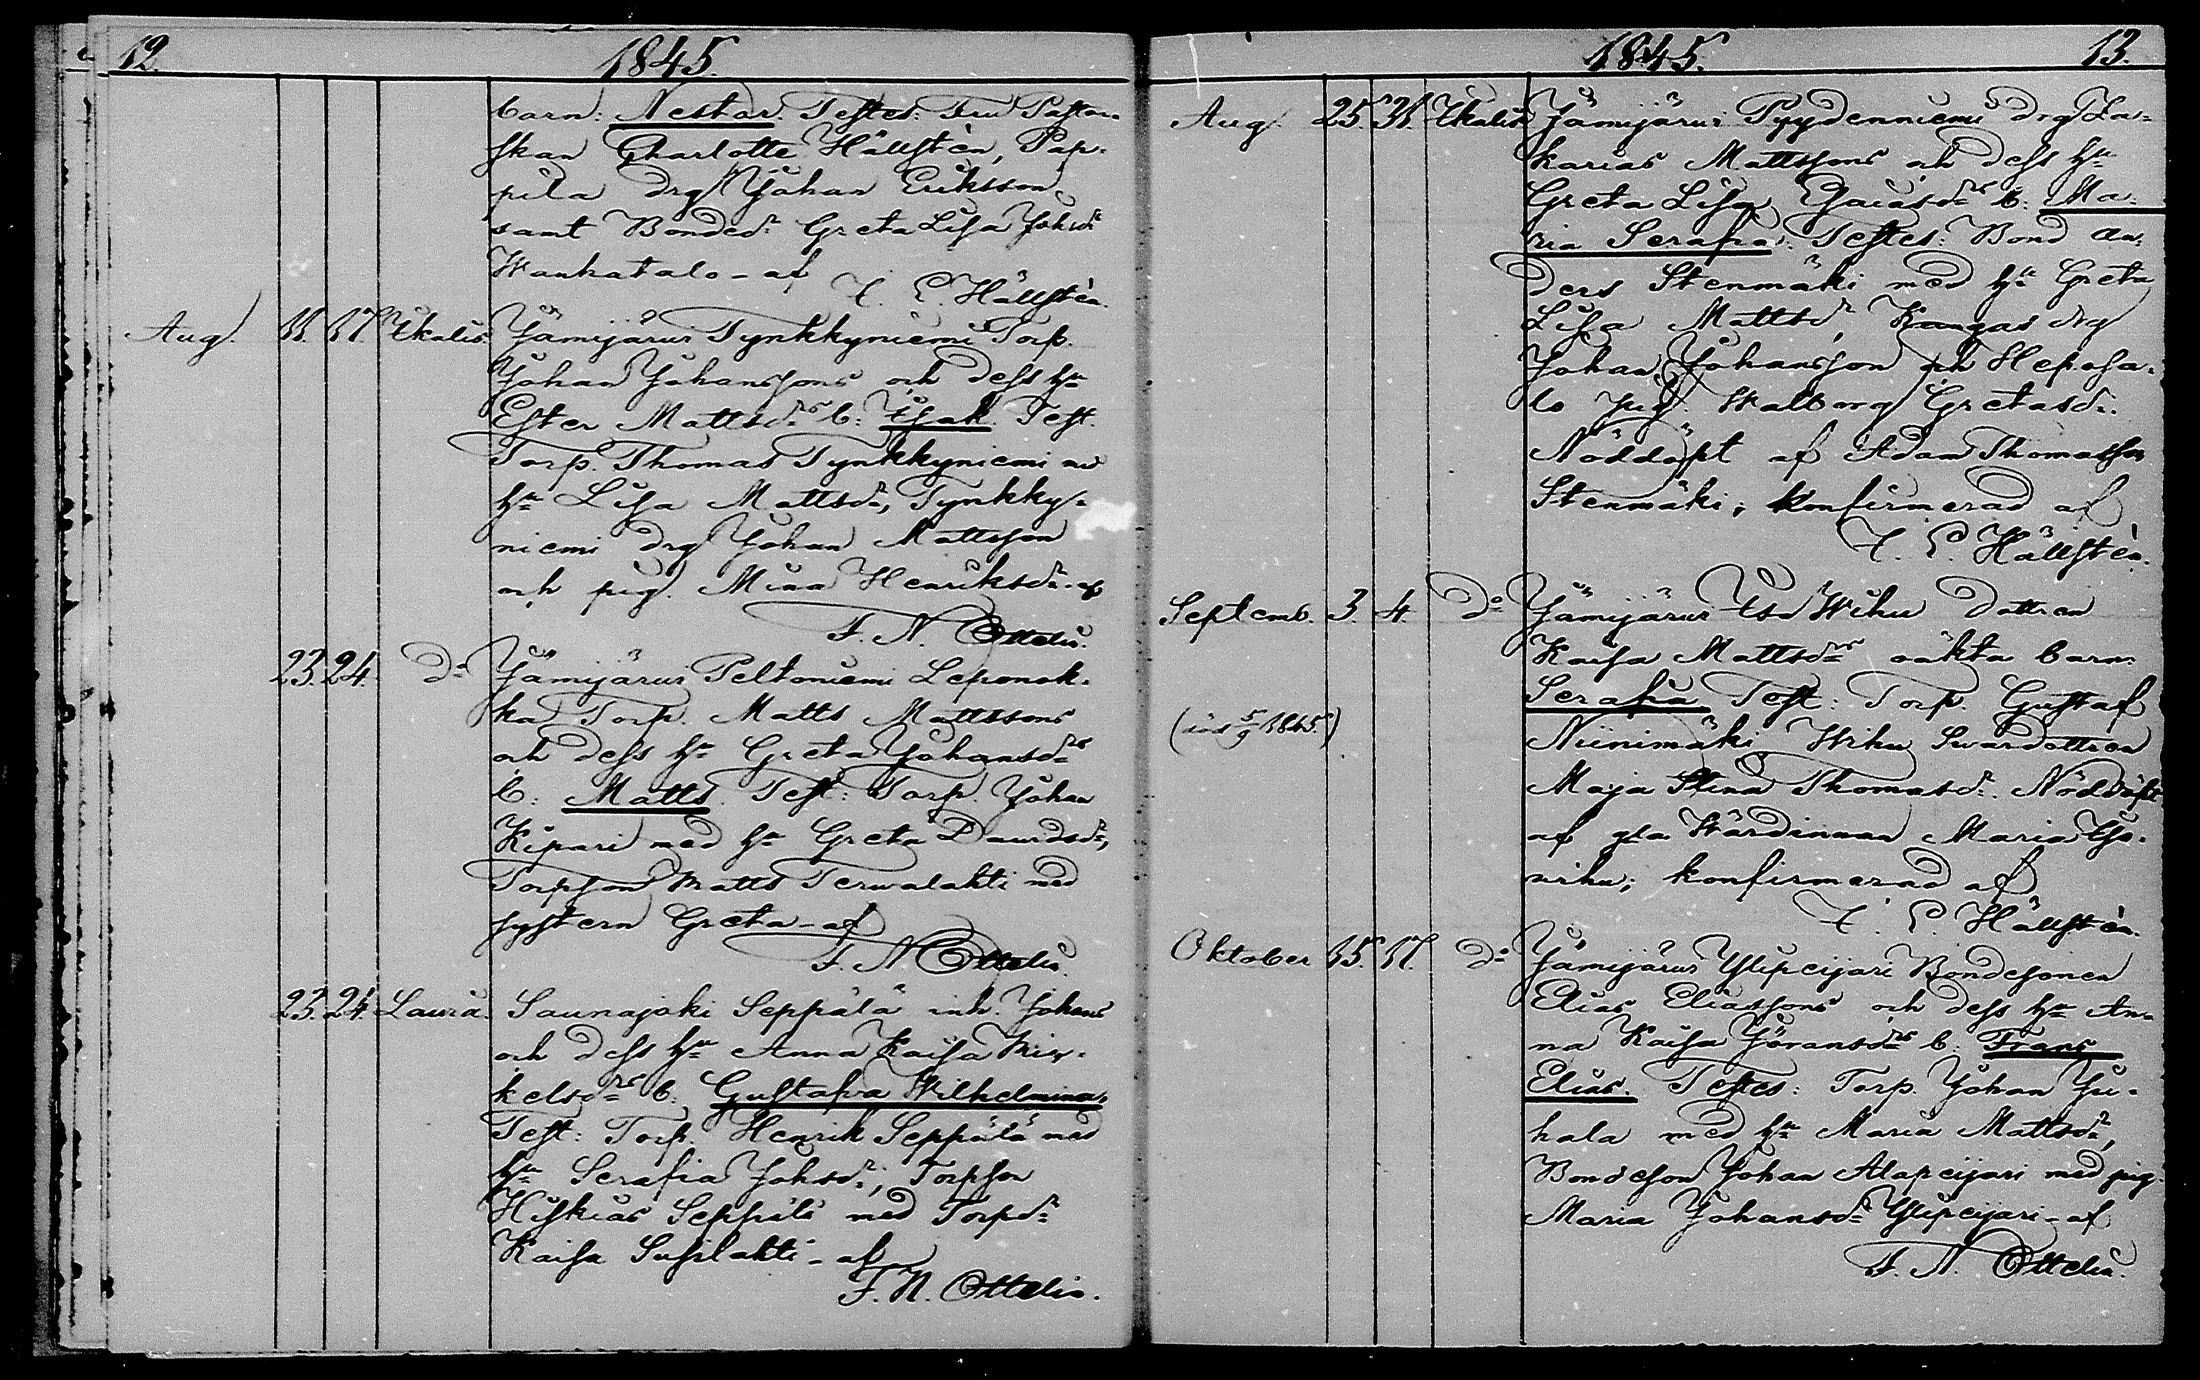 12. 1845.
barn: Nestor. Testes: Fru Pastor-
skan Charlotte Hällstén, Pap-
pila drg Johan Eriksson
samt Bonded:r Greta Lisa Johsd:r
Wankatalo - af
E. Hällstén.
Aug. 11. 17. Ikalis Jämijärvi Tynkkyniemi Torp.
Johan Johanssons och dess h:u
Ester Mattsd:rs b: Isak. Test.
Torp. Thomas Tynkkyniemi m
h:u Lisa Mattsd:r, Tynkky-
niemi drg Johan Mattsson
och pig. Mina Henriksd:r - af
F. N. Ottelin.
23. 24. D:o Jämijärvi Peltoniemi Leponok-
ka Torp. Matts Mattssons
och dess h:u Greta Johansd:rs
b: Matts. Test: Torp. Johan
Kipari med h:u Greta Davidsd:r,
Torpson Matts Terwalahti med
systern Greta - af
F. N. Ottelin.
23. 24. Lavia. Saunajoki Seppälä inh. Johans
och dess h:u Anna Kaisa Mic-
kelsd:rs b. Gustafva Wilhelmina.
Test: Torp. Henrik Seppälä med
h:u Serafia Johsd:r, Torpson
Hiskias Seppälä med Torpd:r
Kaisa Susilahti - af
F. N. Ottelin.
1845. 13.
Aug. 25. 31. Ikalis Jämijärvi Pyydenniemi drg Za-
karias Mattssons och dess h:u
Greta Lisa Esaiasd:rs b: Ma-
ria Serafia. Testes: Bond An-
ders Stenmäki med h:u Greta
Lisa Mattsd:r, Kangas drg
Johan Johansson och Heposa-
lo pig. Walborg Gretasd:r.
Nöddöpt af Adam Thomasson
Stenmäki; konfirmerad af
E. Hällstén.
Septemb. 3. 4. D:o Jämijärvi Iso Wihu dottren
Kaisa Mattsd:rs oäkta barn
Serafia Test: Torp. Gustaf
(död 5/9 1845.)
Niinimäki Wihu Swärdottren
Maja Stina Thomasd:r. Nöddöpt
af gla Wärdinnan Maria Iso-
wihu; konfirmerad af
E. Hällstén.
Oktober 15. 17. D:o Jämijärvi Ylipeijari Bondesonen
Elias Eliassons och dess h:u An-
na Kaisa Göransd:rs b: Frans
Elias. Testes: Torp. Johan Ju-
hala med h:u Maria Mattsd:r,
Bondeson Johan Alapeijari med pig.
Maria Johansd:r Ylipeijari - af
F. N. Ottelin.